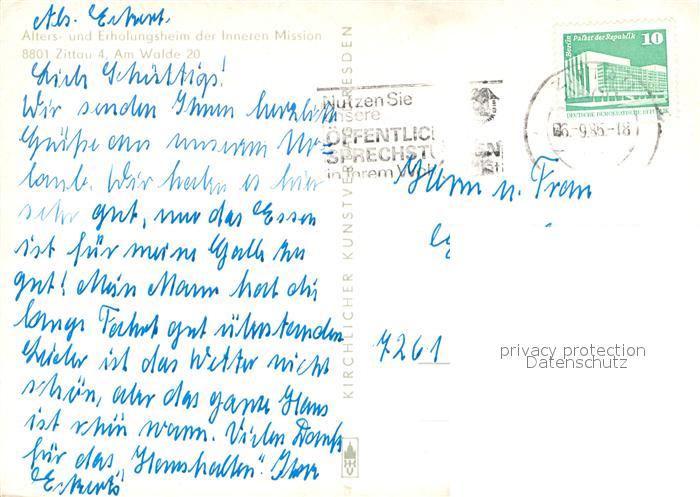 Abs. Eckert.
Alters- und Erholungsheim der Inneren Mission
8801 Zittau 4, Am Walde 20
Liebe Schüttigs!
Wir senden Ihnen herzliche
Grüße aus unserem Ur-
laub. Wir haben es hier
sehr gut, nur das Essen
ist für meine Galle zu
gut! Mein Mann hat die
lange Fahrt gut überstanden
Leider ist das Wetter nicht
schön, aber das ganze Haus
ist schön warm. Vielen Dank
für das "Haushalten". Ihre
Eckerts
KIRCHLICHER KUNSTVERLAG DRESDEN
Nutzen Sie
unsere
ÖFFENTLIC
SPRECHST EN
in Ihrem W
Berlin Palast der Republik 10
DEUTSCHE DEMOKRATISCHE REPUBLIK
-9.85-18
Herrn u. Frau
7261
privacy protection
Datenschutz